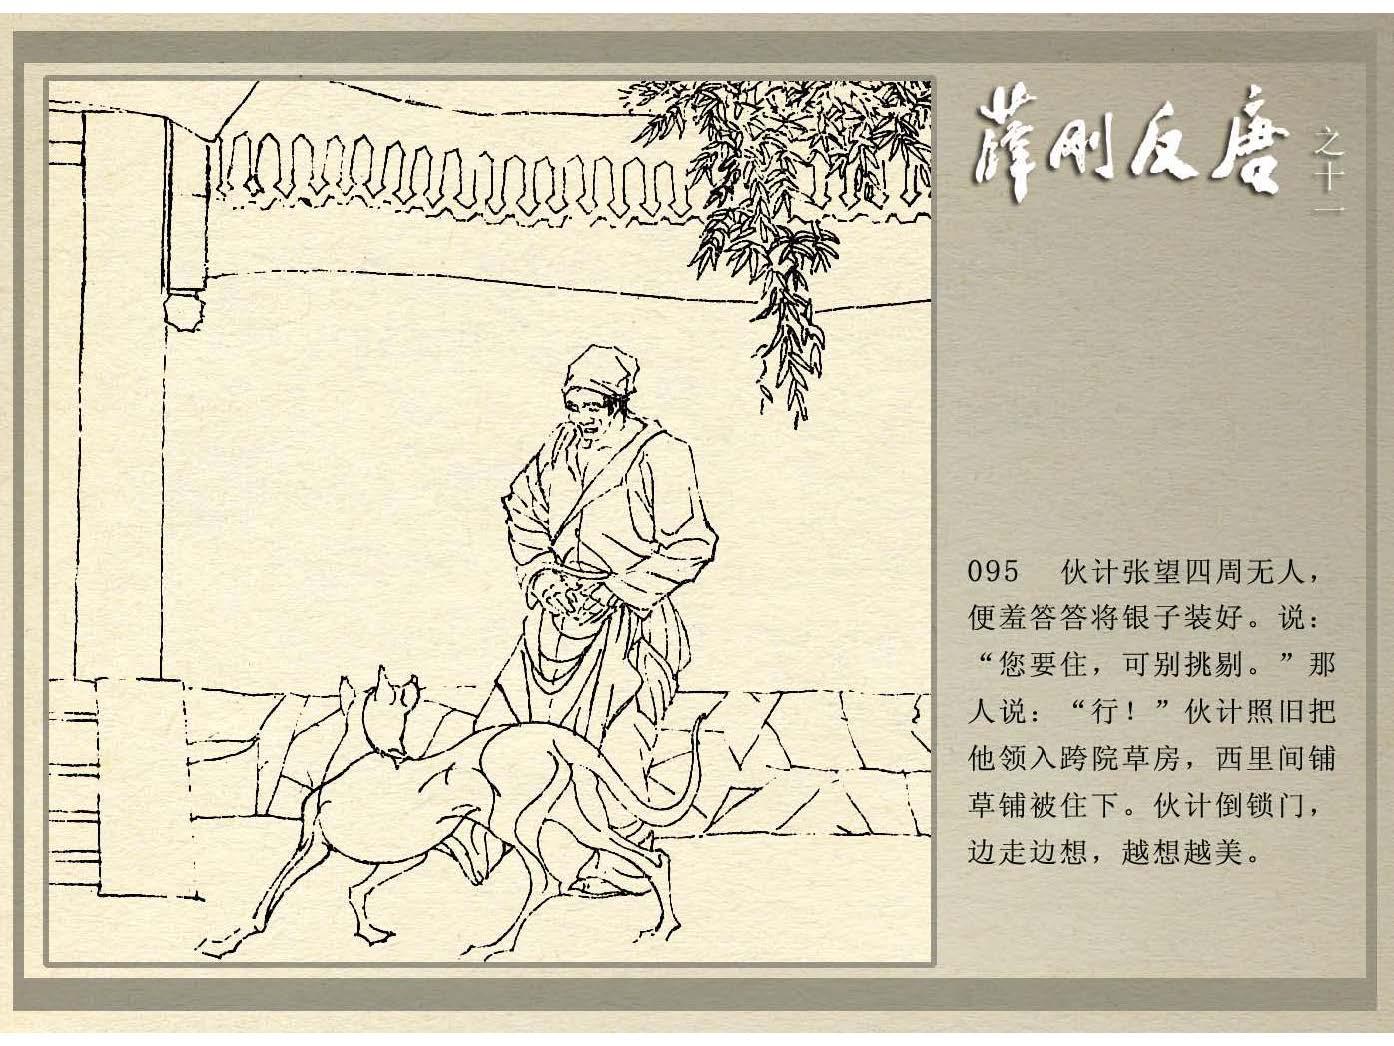 薛刚反唐
之十一
095 伙计张望四周无人，
便羞答答将银子装好。说：
“您要住，可别挑剔。”那
人说：“行！”伙计照旧把
他领入跨院草房，西里间铺
草铺被住下。伙计倒锁门，
边走边想，越想越美。